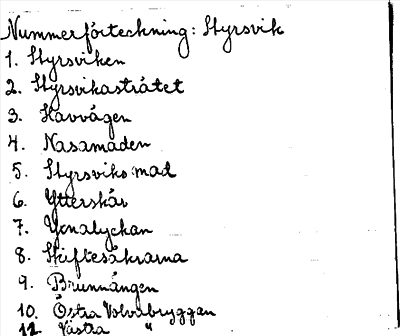 Nummerförteckning: Styrsvik
1. Styrsviken
2. Styrsvikastråtet
3. Havvågen
4. Nasamaden
5. Styrsviks mad
6. Ytterskär
7. Yxnalyckan
8. Skiftesåkrarna
9. Brunnängen
10. Östra Valvabryggan
11. Västra "